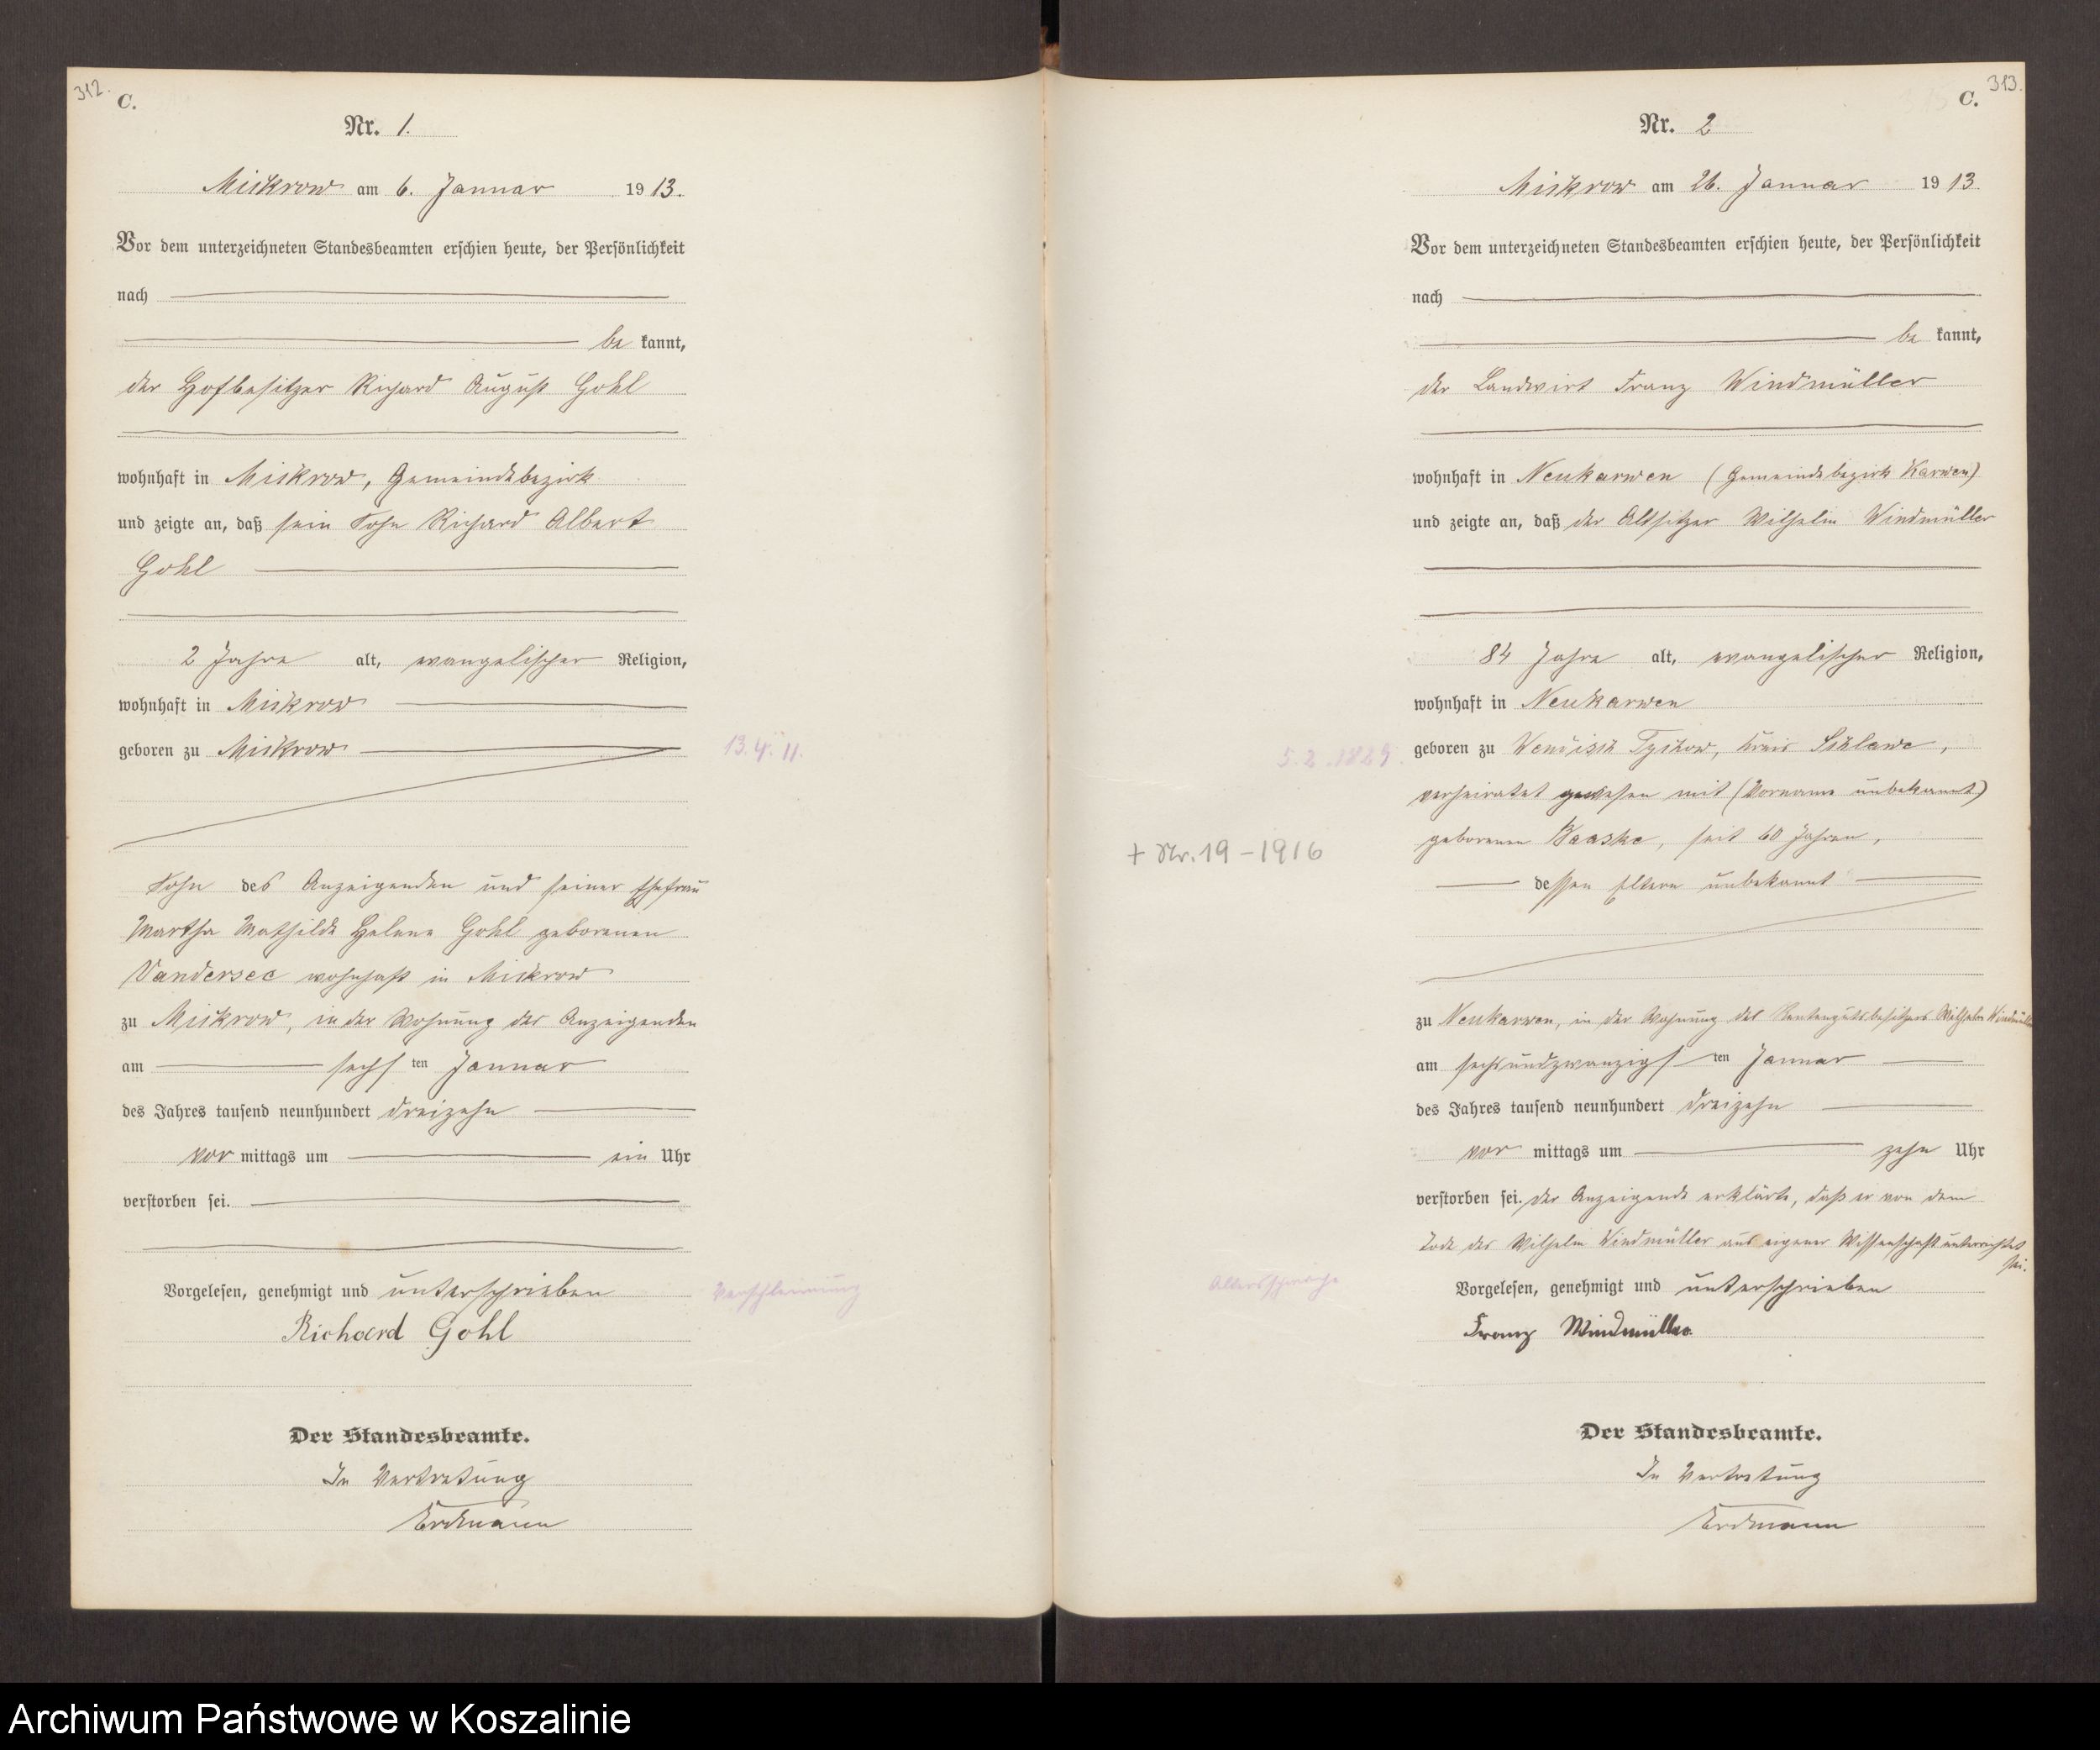 312.
C.
Nr. 1.
Mickrow am 6. Januar 1913.
Vor dem unterzeichneten Standesbeamten erschien heute, der Persönlichkeit
nach
be kannt,
der Hofbesitzer Richard August Gohl
wohnhaft in Mickrow, Gemeindebezirk
und zeigte an, daß sein Sohn Richard Albert
Gohl
2 Jahre alt, evangelischer Religion,
wohnhaft in Mickrow
geboren zu Mickrow
13.4.11.
Sohn des Anzeigenden und seiner Ehefrau
Martha Mathilde Helene Gohl geborenen
Vandersee wohnhaft in Mickrow
zu Mickrow, in der Wohnung des Anzeigenden
am sechsten Januar
des Jahres tausend neunhundert dreizehn
vor mittags um ein Uhr
verstorben sei.
Vorgelesen, genehmigt und unterschrieben
Verschleimung
Richard Gohl
Der Standesbeamte.
In Vertretung
Erdmann
313.
C.
Nr. 2
Mickrow am 26. Januar 1913
Vor dem unterzeichneten Standesbeamten erschien heute, der Persönlichkeit
nach
be kannt,
der Landwirt Franz Windmüller
wohnhaft in Neukarwen (Gemeindebezirk Karwen)
und zeigte an, daß der Altsitzer Wilhelm Windmüller
84 Jahre alt, evangelischer Religion,
wohnhaft in Neukarwen
5.2.1829.
geboren zu Tychow, Kreis Schlawe,
verheiratet gewesen mit (Vorname unbekannt)
geborenen Baaske, seit 60 Jahren,
+ Nr. 19 - 1916
dessen Eltern unbekannt
zu Neukarwen, in der Wohnung des Rentengutsbesitzers Wilhelm Windmüller
am sechsundzwanzigsten Januar
des Jahres tausend neunhundert dreizehn
vor mittags um zehn Uhr
verstorben sei. Der Anzeigende erklärte, daß er von dem
Tode des Wilhelm Windmüller aus eigener Wissenschaft unterrichtet
sei.
Altersschwäche
Vorgelesen, genehmigt und unterschrieben
Franz Windmüller
Der Standesbeamte.
In Vertretung
Erdmann
Archiwum Państwowe w Koszalinie